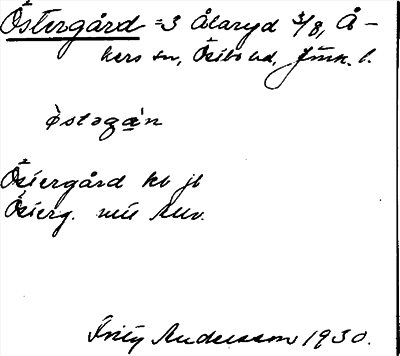 Östergård =3 Ålaryd 3/8, Å-
kers sn, Östbo hd, Jönk. l.
östəgạ̊'n
Östergård kb jb
Österg. mtl Allv.
Fritz Andersson 1930.